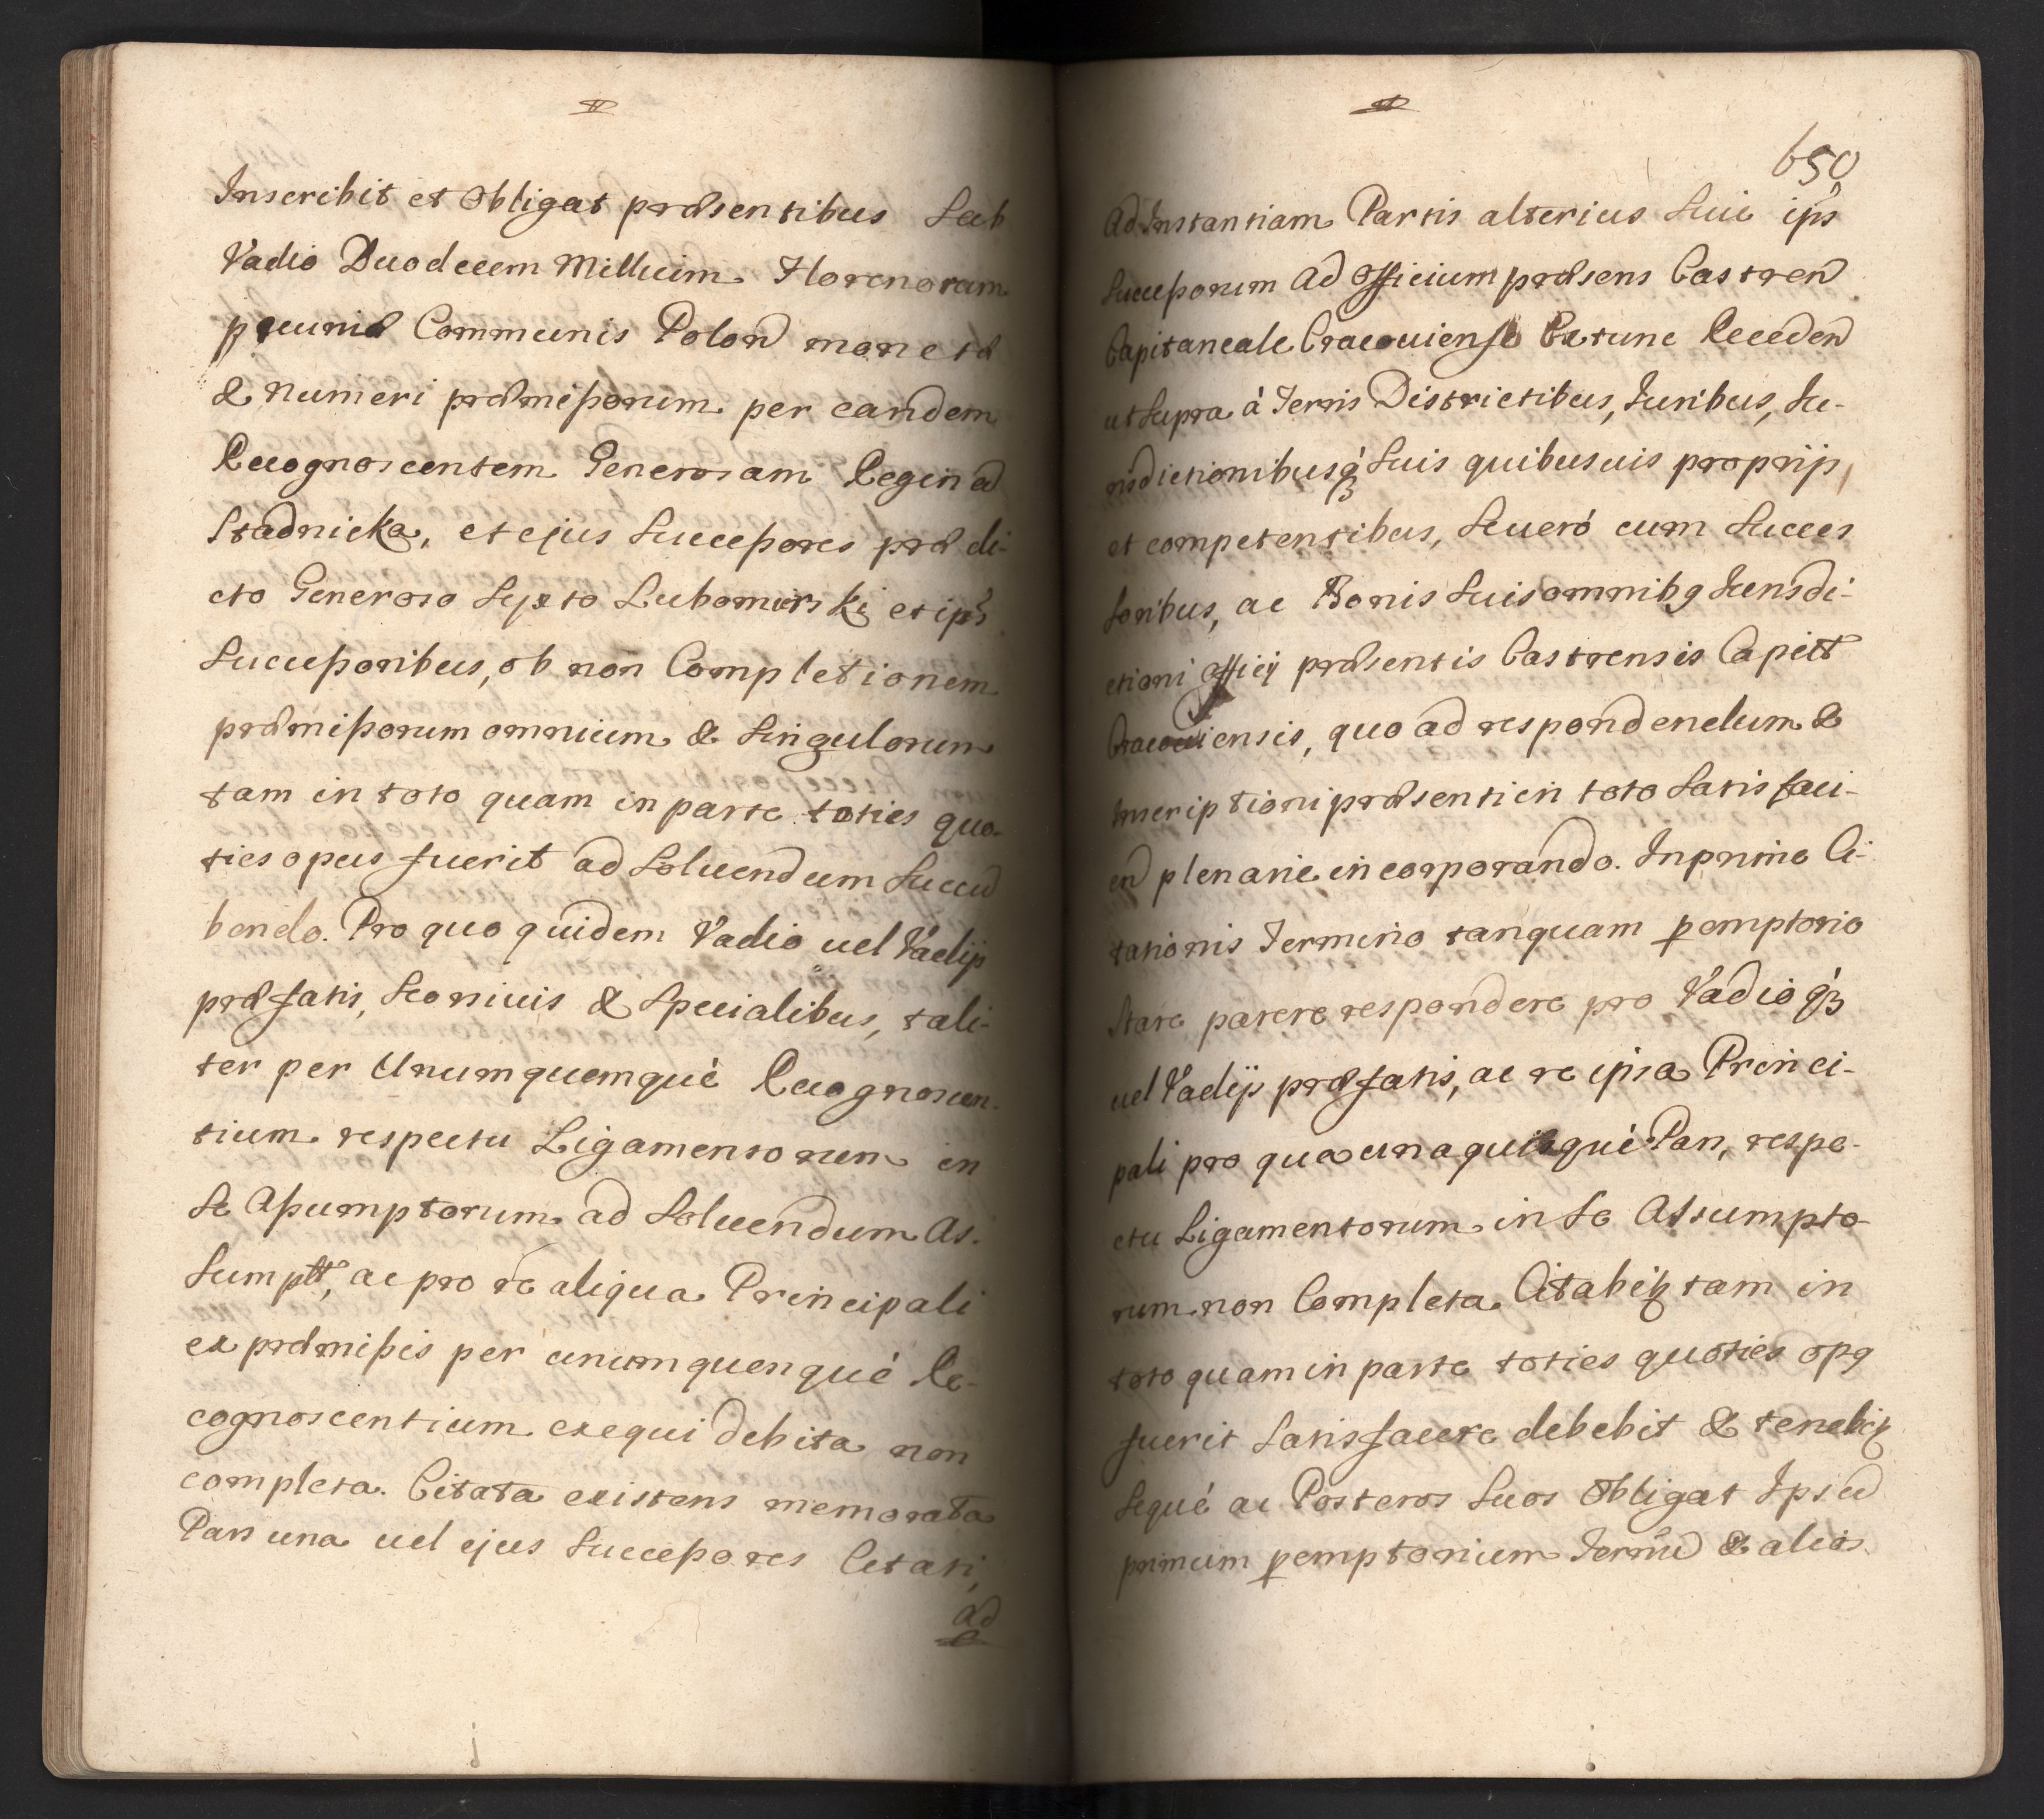 Inscribit et Obligat præsentibus Sub
Vadio Duodecem Millium Florenorum
pecuniæ Communis Polon monetæ
& Numeri præmissorum per eandem
Recognoscentem Generosam Reginã
Stadnicka, et ejus Successores prædi-
cto Generoso Septo Lubomirski et ips
Successoribus, ob non Completionem
præmissorum omnium & Singulorum
tam in toto quam in parte toties quo-
ties opus fuerit ad Soluendum Succũ
bendo. Pro quo quidem Vadio uel Vadijs
præfatis, Seoniuis & Specialibus, tali-
ter per Unumquemquè Recognoscen-
tium respectu Ligamentorum in
Se Assumptorum ad Soluendum As-
Sumptt, ac pro re aliqua Principali
ex præmissis per unumquenquè Re-
cognoscentium exequi debita non
completa. Citata existens memorata
Pars una uel ejus Successores Citati,
ad
650
Ad Instantiam Partis alterius Siue ips
Successorum Ad Officium præsens Castren
Capitaneale Cracouiense Extunc Receden
ut Supra à Terris Districtibus, Juribus, Ju-
risdictionibusq3 Suis quibusuis proprijs,
et competentibus, Seuerò cum Succes
soribus, ac Bonis Suis omnibg Jurisdi-
ctioni Officij præsentis Castrensis Capitt
Cracouiensis, quo ad respondendum &
Inscriptioni præsenti in toto Satisfaci-
en plenarie incorporando. In primo Ci-
tationis Termino tanquam pemptorio
Stare parere respondere pro Vadio q3
uel Vadijs præfatis, ac re ipsa Princi-
pali pro qua una quæquè Pars, respe-
ctu Ligamentorum in Se Assumpto-
rum non Completa Citabit tam in
toto quam in parte toties quoties opg
fuerit Satisfacere debebit & tenebit
Sequè ac Posteros Suos Obligat Ipsũ
primum pemptorium Termũ & alios